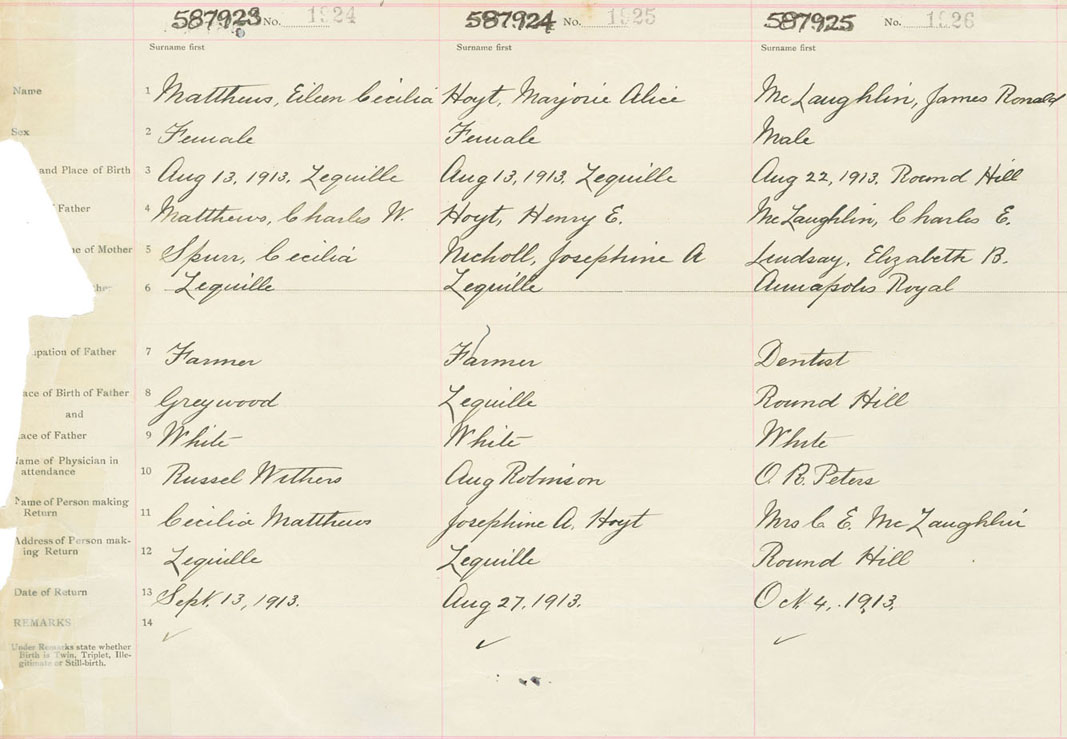 587923 No. 1924 587924 No. 1925 587925 No. 1926
Surname first Surname first Surname first
Name 1 Matthews, Eileen Cecilia Hoyt, Marjorie Alice McLaughlin, James Ronald
Sex 2 Female Female Male
and Place of Birth 3 Aug 13, 1913. Lequille Aug 13, 1913. Lequille Aug 22, 1913. Round Hill
Father 4 Matthews, Charles W. Hoyt, Henry E. McLaughlin, Charles E.
of Mother 5 Spurr, Cecilia Nicholl, Josephine A Lindsay, Elizabeth B.
6 Lequille Lequille Annapolis Royal
upation of Father 7 Farmer Farmer Dentist
ace of Birth of Father 8 Greywood Lequille Round Hill
and
ace of Father 9 White White White
Name of Physician in
attendance 10 Russel Withers Aug Robinson O. R. Peters
Name of Person making
Return 11 Cecilia Matthews Josephine A. Hoyt Mrs C E. McLaughlin
Address of Person mak-
ing Return 12 Lequille Lequille Round Hill
Date of Return 13 Sept. 13, 1913. Aug 27, 1913. Oct 4, 1913.
REMARKS 14
Under Remarks state whether
Birth is Twin, Triplet, Ille-
gitimate or Still-birth.